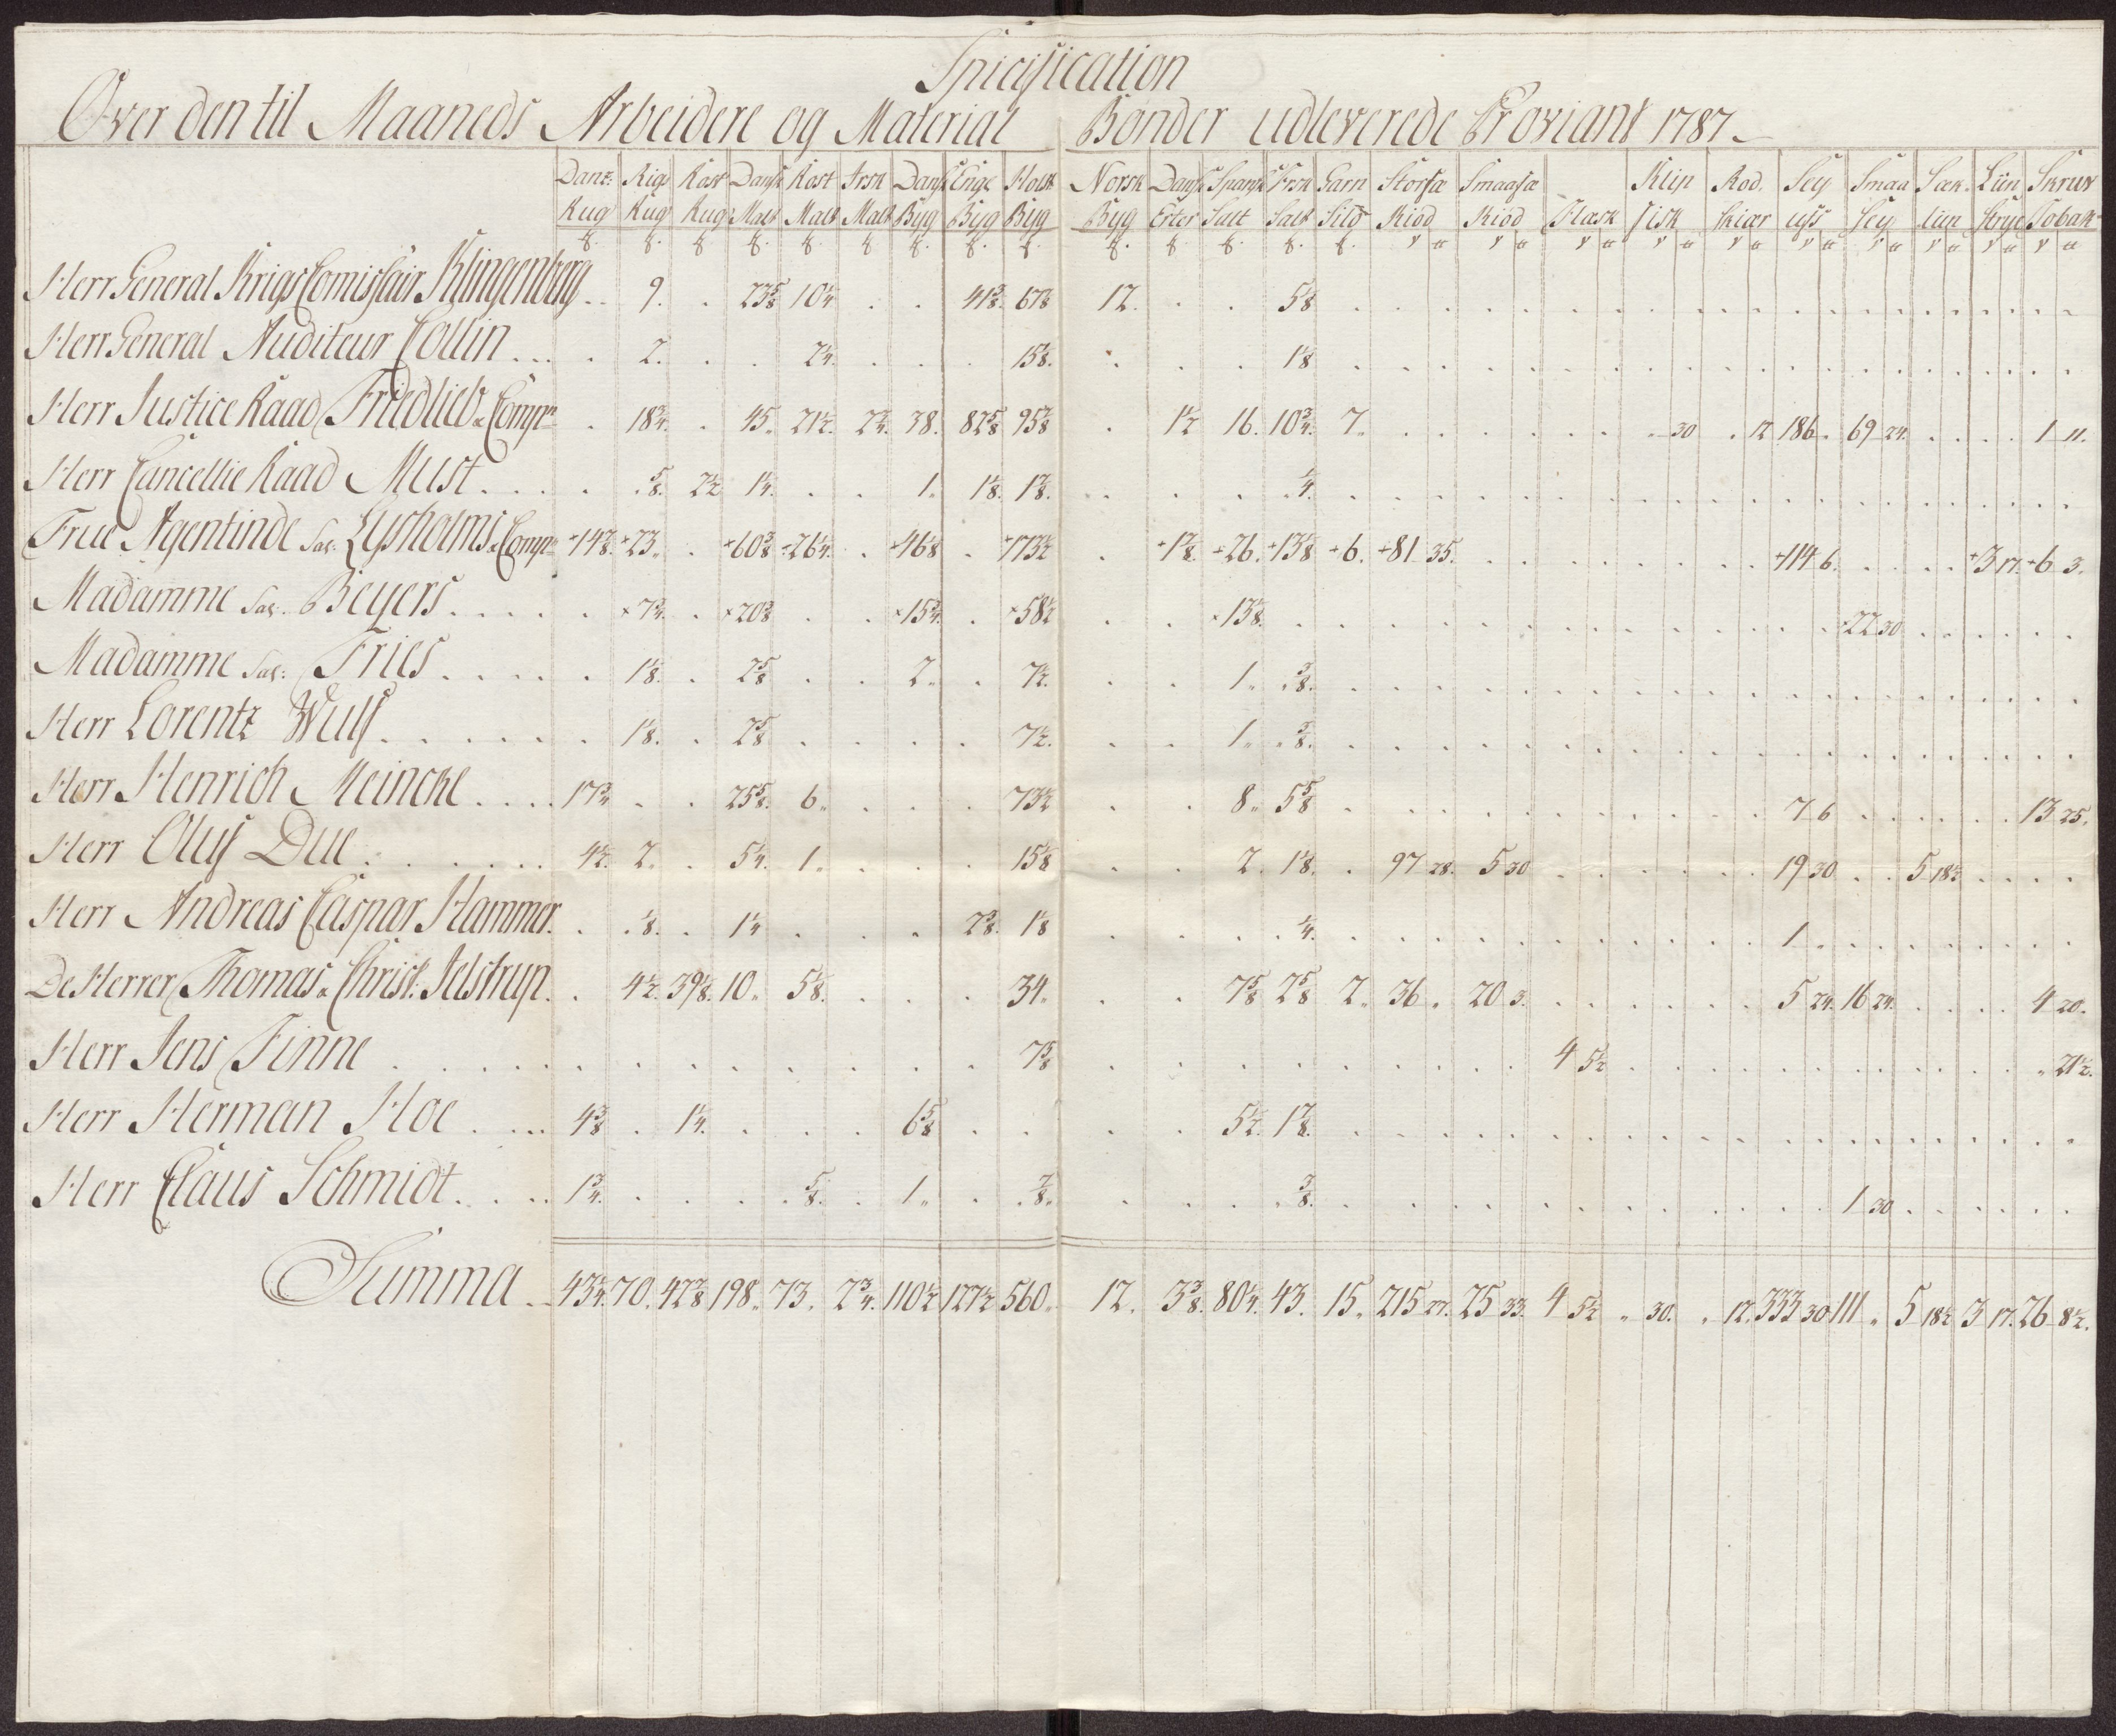 Specification
Over den til Maaneds Arbeidere og Material Bønder udleverede Proviant 1787.
Danz: Rug Rigs Rug Rost Rug Dansk Malt Rost Malt Irsk Malt Dansk Byg Engl Byg Holst Byg Norsk Byg Dansk Erter Spansk Salt Frsk Salt Garn Sild Storfæ Kiød Smaafæ Kiød Flæsk Klip Fisk Rod. skiær Sey ufs Smaa Sey Sæk. liin Liin Strye Skruv Tobak
Herr General Krigs Comissair Klingenberg . . 9. . 23 5/8 10 1/4 . . 41 3/8. 67 7/8 12. . . 5 1/8
Herr General Auditeur Collin . . . . 2. . . 2 1/4. . . . 15 1/8. . . . 1 1/8
Herr Justice Raad Friedlieb & Comp: . 18 3/4. . 45. 21 1/2. 2 3/4. 38. 82 5/8 95 7/8 . 1 1/2 16. 10 3/4. 7. . . . . . . . 30 . 12 186 . 69 24. . . . . 1 11.
Herr Cancellie Raad Must . . . . . 5/8. 2 1/2 1 1/4. . . 1. 1 1/8. 1 7/8. . . . 1/4.
Frue Agentinde Sal: Lysholms & Comp: +14 7/8. +23. . +60 3/8 +26 1/4. . +46 1/8 . +173 1/2 . +1 7/8. +26. +13 1/8 +6. +81 35. . . . . . . . . +114 6. . . . . +3 17. +6 3.
Madamme Sal: Beyers . . . . . +7 3/4. . +20 3/8 . . +15 3/4. . +58 1/2 . . +13 1/8. . . . +22 30
Madamme Sal: Fries . . . . . 1 1/8. . 2 5/8 . . 2. . 7 1/2. . . 1. 3/8.
Herr Lorentz Wulf . . . . . . 1 1/8. . 2 5/8 . . . . 7 1/2. . . 1. 3/8.
Herr Henrich Meincke . . . . 17 3/4 . . 25 5/8. 6. . . . 73 1/2 . . 8. 5 5/8 . . . 7 6 . . . . . . 13 25.
Herr Oluf Due . . . . . . 4 1/2. 2. . 5 1/4. 1. . . . 15 1/8 . . 2. 1 1/8. . 97 28. 5 30 . . . . . . 19 30 . . 5 18 1/2
Herr Andreas Caspar Hammer. . 1/8. . 1 1/4 . . . 2 3/8. 1 1/8 . . . 1/4. . . . 1.
De Herrer Thomas & Christ: Jelstrup. . 4 1/2. 39 1/8. 10. 5 1/8. . . . 34. . . 7 5/8 2 5/8 2. 36 . 20 3. . . . . . . 5 24. 16 24. . . . . 4 20.
Herr Jens Finne . . . . . . . . 7 5/8 . . . 4 5 1/2 . . . 21 1/2.
Herr Herman Hoe . . . 4 3/8 . 1 1/4. . . . 6 5/8 . . . . 5 1/2. 1 7/8.
Herr Claus Schmidt . . . . 1 3/4. . . . 5/8. . 1. . 7/8. . . . 3/8. . . . 1 30
Summa . . 43 1/4. 70. 42 7/8 198. 73. 2 3/4. 110 1/2 127 1/2 560. 12. 3 3/8. 80 1/4. 43. 15. 215 27. 25 33. 4 5 1/2 . 30. . 12. 333 30 111 . 5 18 1/2 3 17. 26 8 1/2.